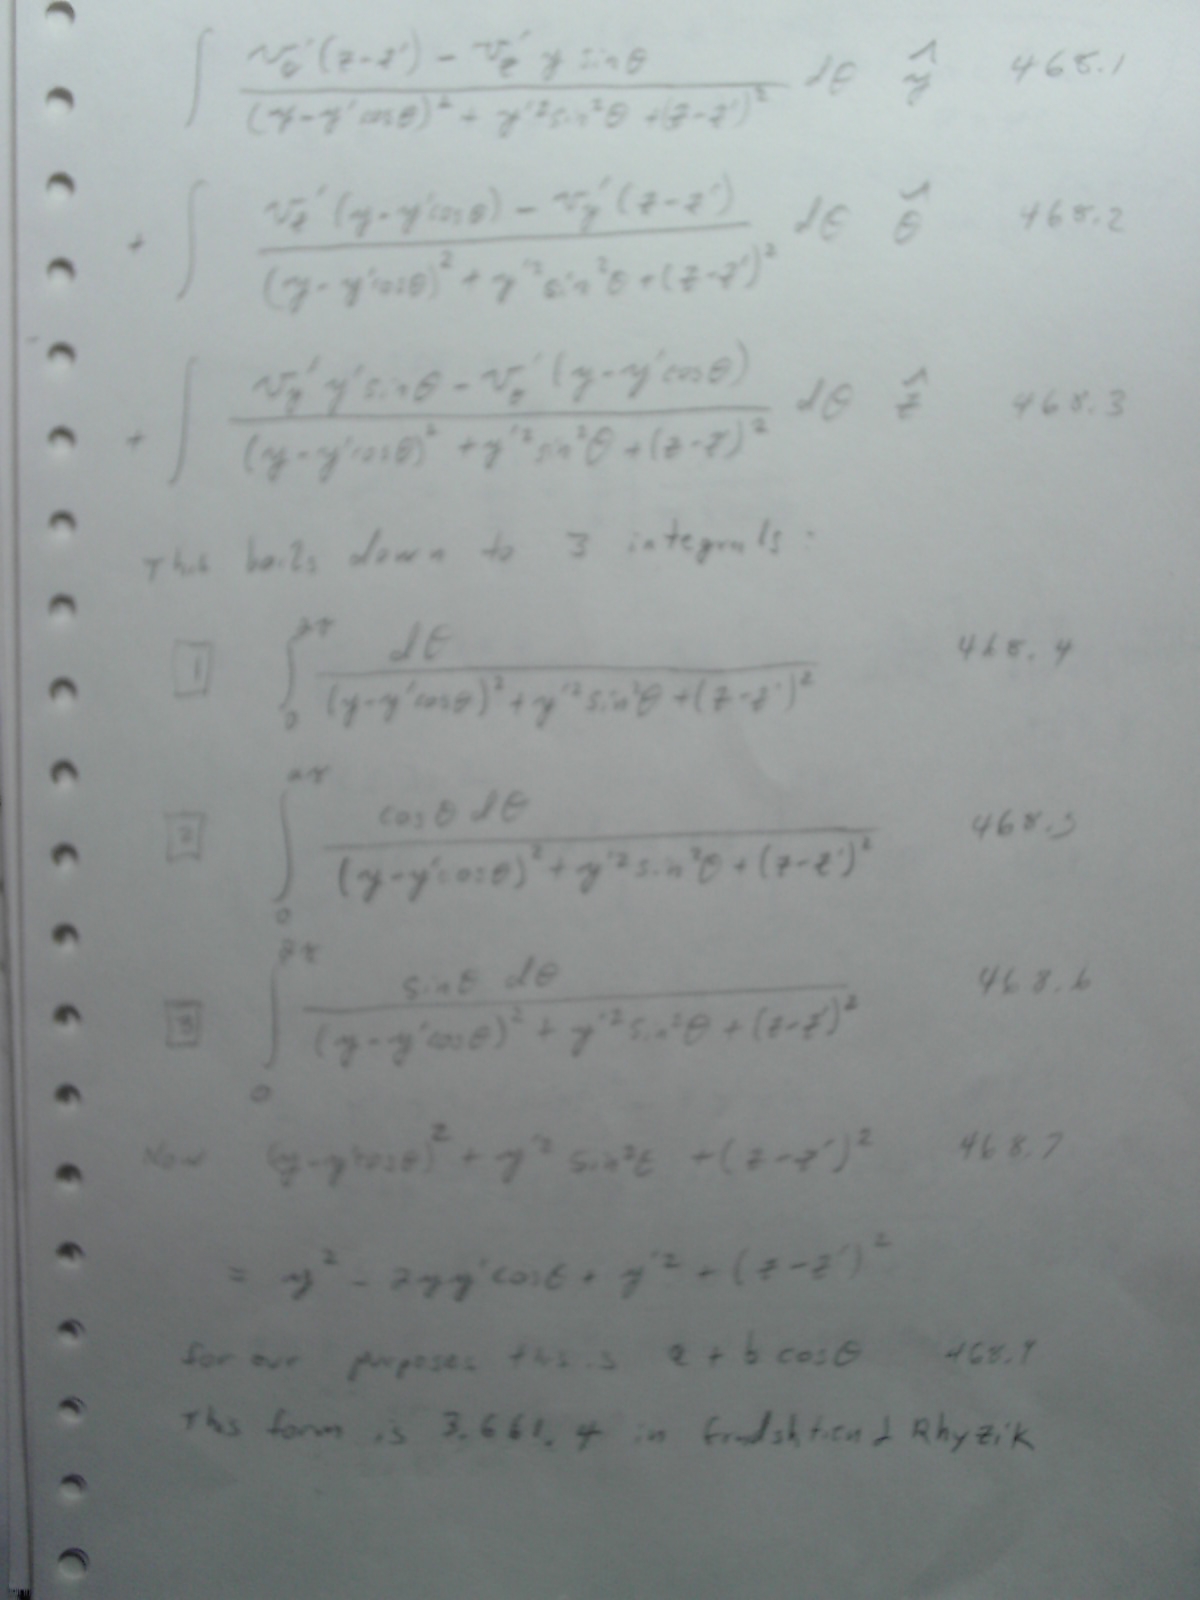 ∫ (v_θ'(z-z') - v_z' y sinθ) / ((y-y'cosθ)² + y'² sin²θ + (z-z')²) dθ ŷ 468.1
+ ∫ (v_z'(y-y'cosθ) - v_y'(z-z')) / ((y-y'cosθ)² + y'² sin²θ + (z-z')²) dθ θ̂ 468.2
+ ∫ (v_y' y' sinθ - v_θ'(y-y'cosθ)) / ((y-y'cosθ)² + y'² sin²θ + (z-z')²) dθ ẑ 468.3
This boils down to 3 integrals:
1 ∫₀^2π dθ / ((y-y'cosθ)² + y'² sin²θ + (z-z')²) 468.4
2 ∫₀^2π cosθ dθ / ((y-y'cosθ)² + y'² sin²θ + (z-z')²) 468.5
3 ∫₀^2π sinθ dθ / ((y-y'cosθ)² + y'² sin²θ + (z-z')²) 468.6
Now (y-y'cosθ)² + y'² sin²θ + (z-z')² 468.7
= y² - 2yy'cosθ + y'² + (z-z')²
for our purposes this is a + b cosθ 468.8
This form is 3.661.4 in Gradshtien & Rhyzik